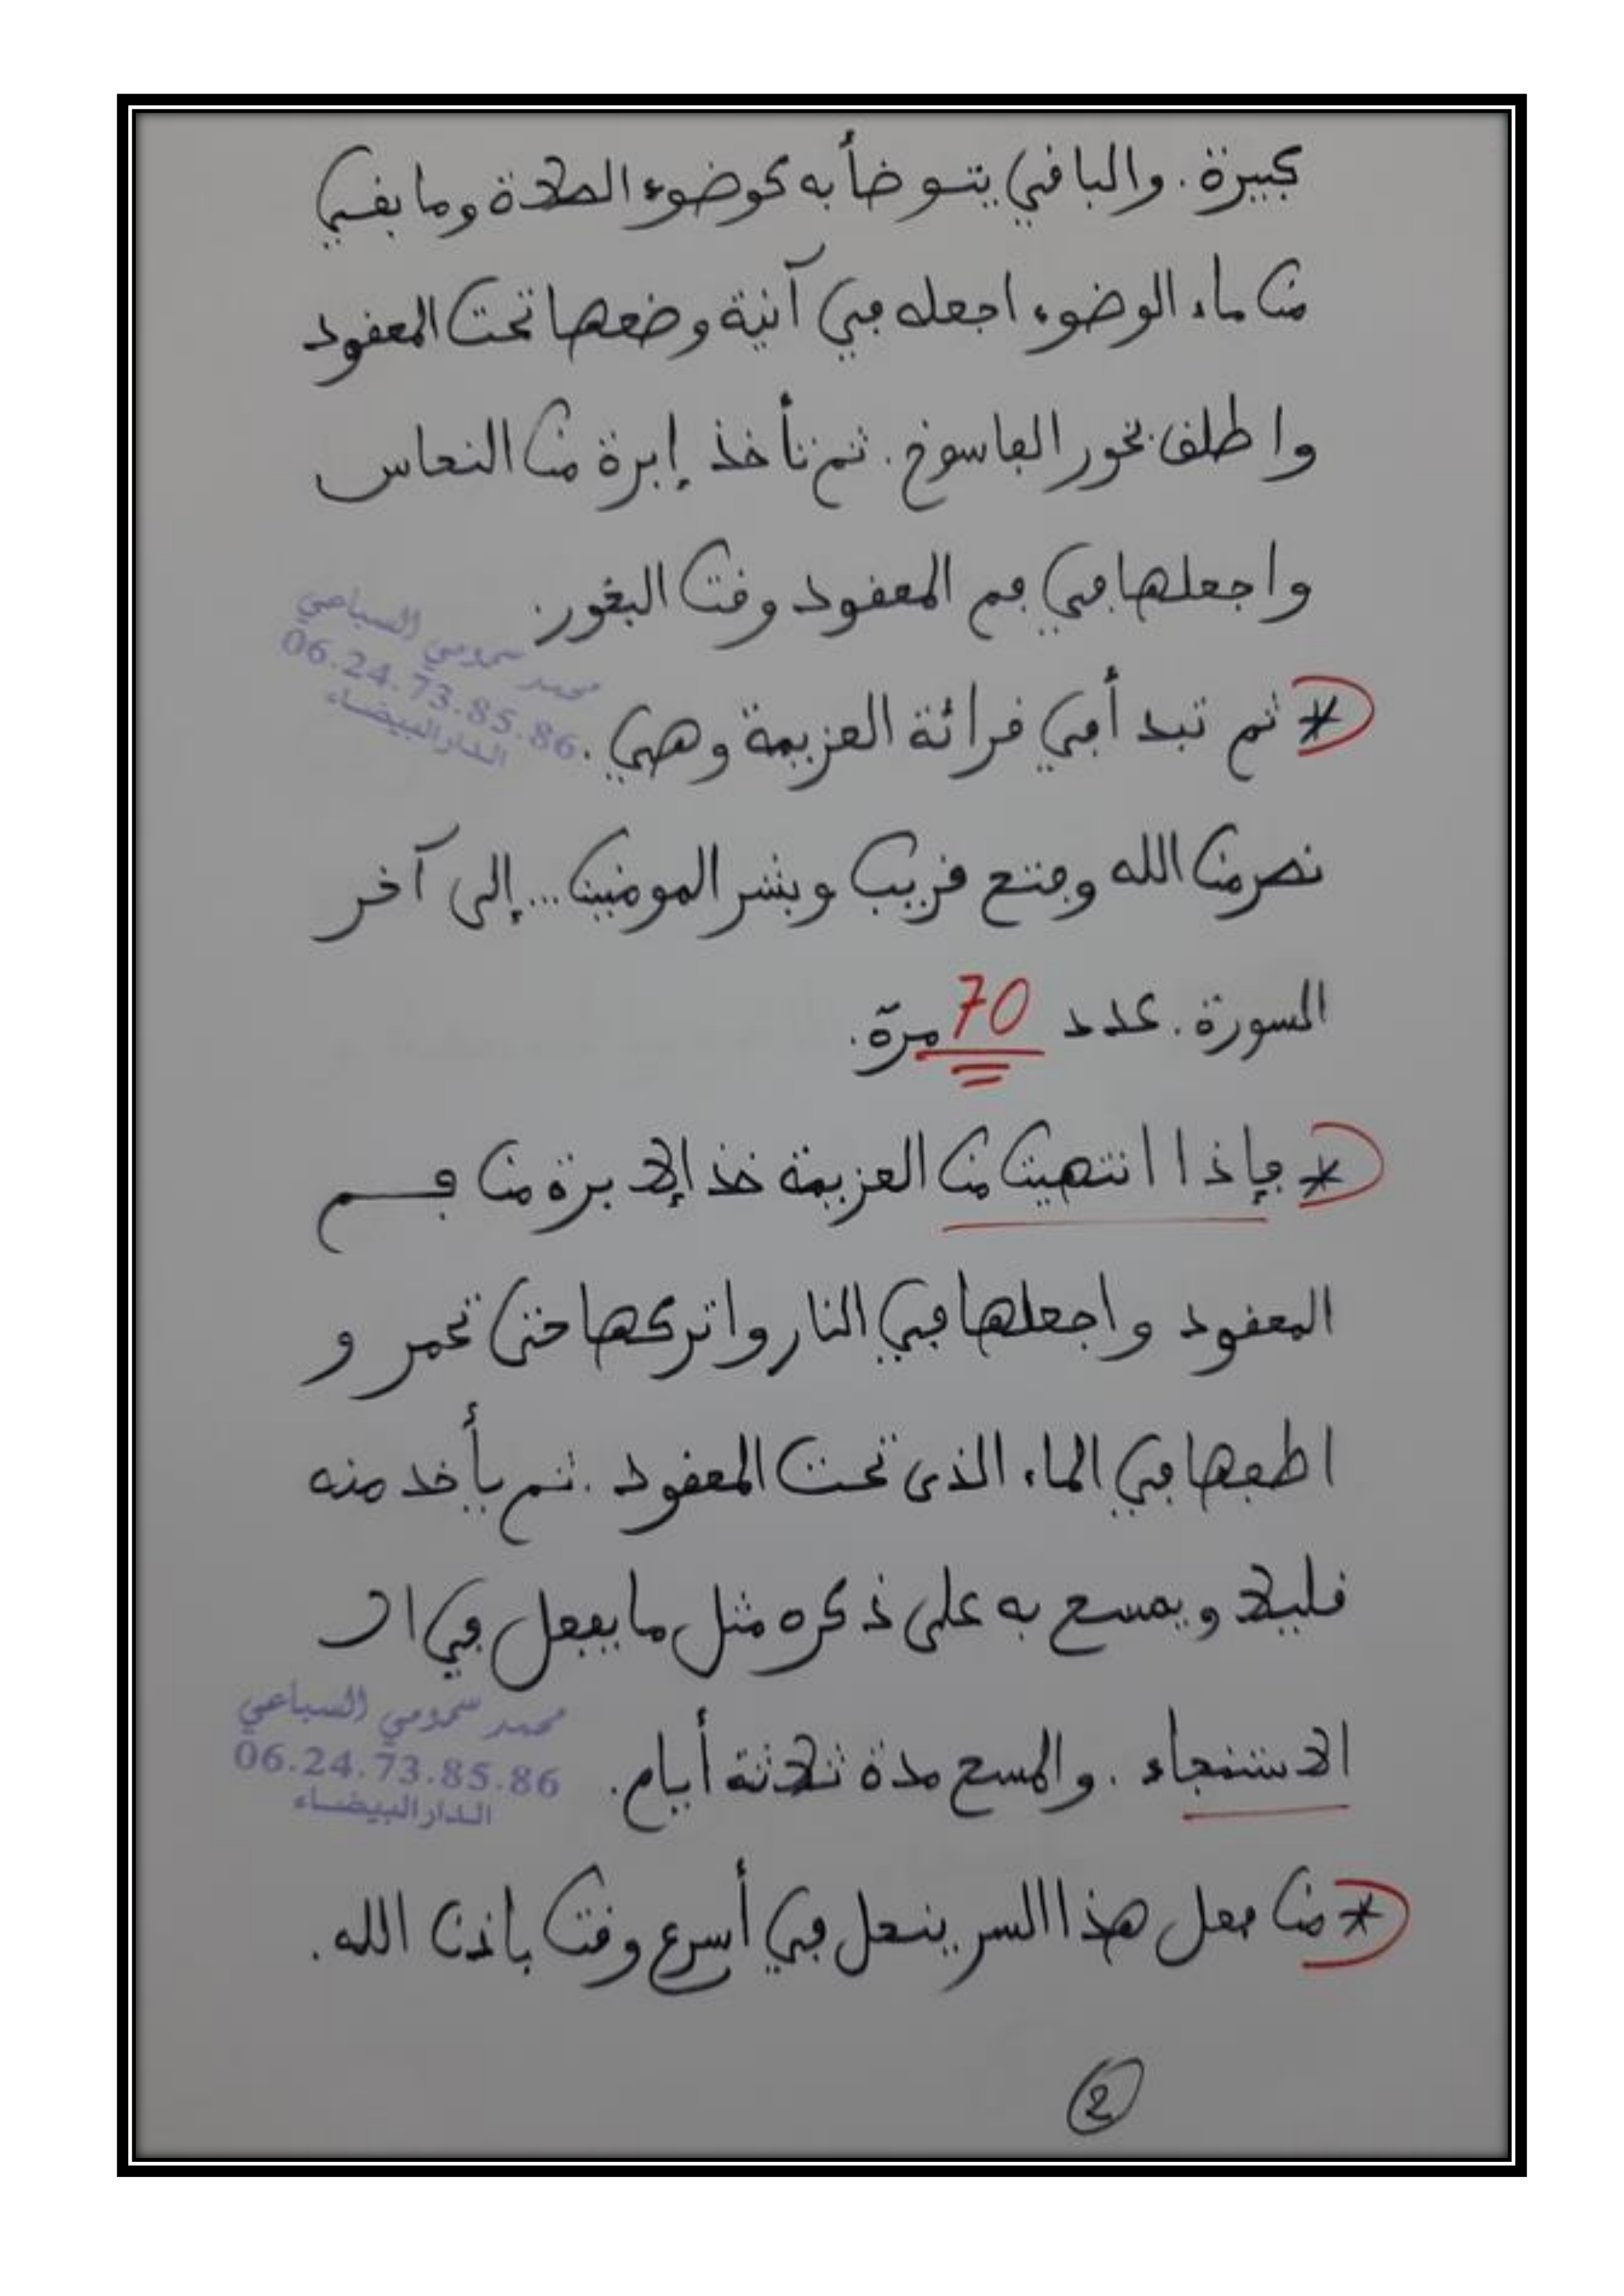 كبيرة. والباقي يتوضأ به كوضوء الصلاة وما بقي
من ماء الوضوء اجعله في آنية وضعها تحت المعقود
واطلق بخور الفاسوخ. ثم تأخذ إبرة من النحاس
واجعلها في فم المعقود وقت البخور.
محمد سمومي السباعي
06.24.73.85.86
الدار البيضاء
* ثم تبدأ في قرائة العزيمة وهي.
نصر من الله وفتح قريب وبشر المومنين... إلى آخر
السورة. عدد 70 مرة.
* فإذا انتهيت من العزيمة خذ إلابرة من فم
المعقود واجعلها في النار واتركها حتى تحمر و
اطفها في الماء الذي تحت المعقود. ثم يأخد منه
قليلا ويمسح به على ذكره مثل ما يفعل في ا
الاستنجاء. والمسح مدة ثلاثة أيام.
محمد سمومي السباعي
06.24.73.85.86
الدار البيضاء
* من فعل هذا السر ينحل في أسرع وقت بإذن الله.
2